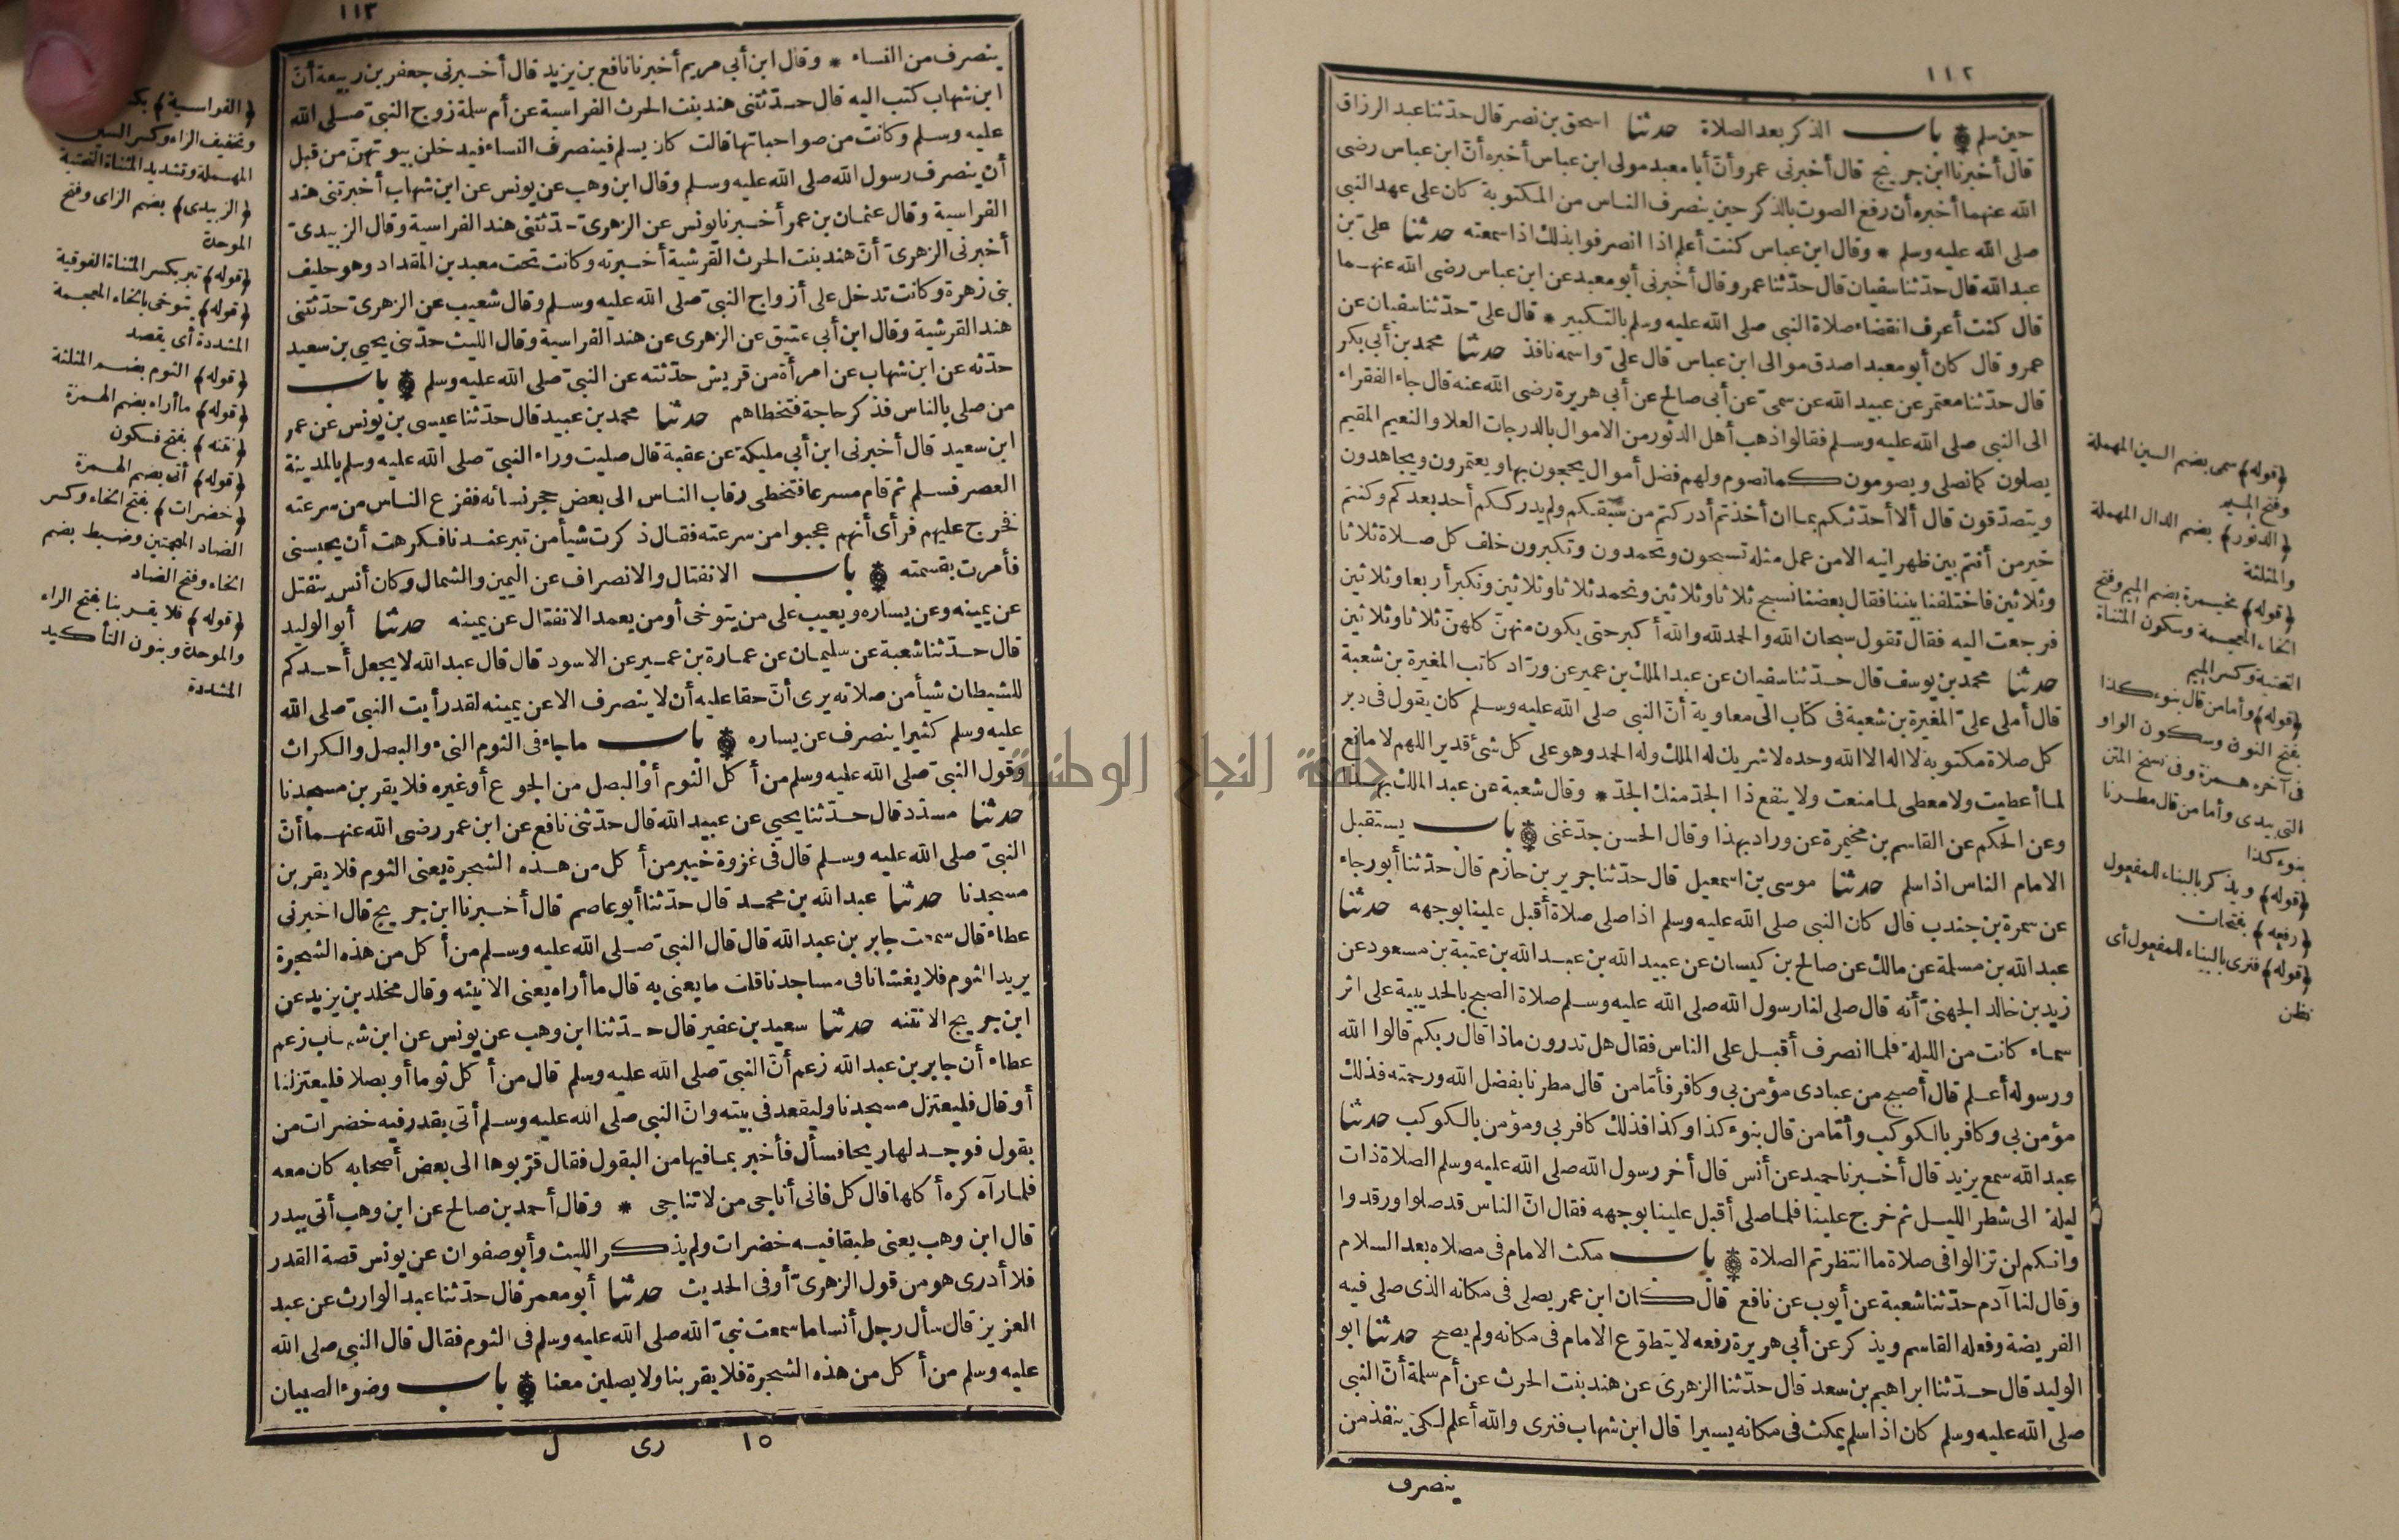 ١١٢
حين سلم باب الذكر بعد الصلاة حدثنا اسحق بن نصر قال حدثنا عبد الرزاق
قال أخبرنا ابن جريج قال أخبرني عمرو أنّ أبا معبد مولى ابن عباس أخبره أنّ ابن عباس رضى
الله عنهما أخبره أن رفع الصوت بالذكر حين ينصرف الناس من المكتوبة كان على عهد النبي
صلى الله عليه وسلم * وقال ابن عباس كنت أعلم اذا انصرفوا بذلك اذا سمعته حدثنا علىّ بن
عبد الله قال حدّثنا سفيان قال حدّثنا عمرو قال أخبرني أبو معبد عن ابن عباس رضى الله عنهما
قال كنت أعرف انقضاء صلاة النبي صلى الله عليه وسلم بالتكبير * قال علىّ حدّثنا سفيان عن
عمرو قال كان أبو معبد اصدق موالى ابن عباس قال علىّ واسمه نافذ حدثنا محمد بن أبي بكر
قال حدّثنا معتمر عن عبيد الله عن سمىّ عن أبي صالح عن أبي هريرة رضى الله عنه قال جاء الفقراء
الى النبي صلى الله عليه وسلم فقالوا ذهب أهل الدثور من الاموال بالدرجات العلا والنعيم المقيم
يصلون كما نصلى ويصومون كما نصوم ولهم فضل أموال يحجون بها ويعتمرون ويجاهدون
ويتصدّقون قال ألا أحدّثكم بما ان أخذتم أدركتم من سبقكم ولم يدرككم أحد بعدكم وكنتم
خير من أنتم بين ظهرانيه الا من عمل مثله تسبحون وتحمدون وتكبرون خلف كل صلاة ثلاثا
وثلاثين فاختلفنا بيننا فقال بعضنا نسبح ثلاثا وثلاثين ونحمد ثلاثا وثلاثين ونكبر أربعا وثلاثين
فرجعت اليه فقال تقول سبحان الله والحمد لله والله أكبر حتى يكون منهنّ كلهنّ ثلاثا وثلاثين
حدثنا محمد بن يوسف قال حدّثنا سفيان عن عبد الملك بن عمير عن ورّاد كاتب المغيرة بن شعبة
قال أملى علىّ المغيرة بن شعبة فى كتاب الى معاوية أنّ النبي صلى الله عليه وسلم كان يقول فى دبر
كل صلاة مكتوبة لا اله الا الله وحده لا شريك له الملك وله الحمد وهو على كل شئ قدير اللهم لا مانع
لما أعطيت ولا معطى لما منعت ولا ينفع ذا الجدّ منك الجدّ * وقال شعبة عن عبد الملك بهذا
وعن الحكم عن القاسم بن مخيمرة عن وراد بهذا وقال الحسن جدّ غنى باب يستقبل
الامام الناس اذا سلم حدثنا موسى بن اسمعيل قال حدّثنا جرير بن حازم قال حدّثنا أبو رجاء
عن سمرة بن جندب قال كان النبي صلى الله عليه وسلم اذا صلى صلاة أقبل علينا بوجهه حدثنا
عبد الله بن مسلمة عن مالك عن صالح بن كيسان عن عبيد الله بن عبد الله بن عتبة بن مسعود عن
زيد بن خالد الجهنىّ أنه قال صلى لنا رسول الله صلى الله عليه وسلم صلاة الصبح بالحديبية على اثر
سماء كانت من الليلة فلما انصرف أقبل على الناس فقال هل تدرون ماذا قال ربكم قالوا الله
ورسوله أعلم قال أصبح من عبادى مؤمن بي وكافر فأمّا من قال مطرنا بفضل الله ورحمته فذلك
مؤمن بي وكافر بالكوكب وأمّا من قال بنوء كذا وكذا فذلك كافر بي ومؤمن بالكوكب حدثنا
عبد الله سمع يزيد قال أخبرنا حميد عن أنس قال أخر رسول الله صلى الله عليه وسلم الصلاة ذات
ليلة الى شطر الليل ثم خرج علينا فلما صلى أقبل علينا بوجهه فقال انّ الناس قد صلوا ورقدوا
وانكم لن تزالوا فى صلاة ما انتظرتم الصلاة باب مكث الامام فى مصلاه بعد السلام
وقال لنا آدم حدّثنا شعبة عن أيوب عن نافع قال كان ابن عمر يصلى فى مكانه الذى صلى فيه
الفريضة وفعله القاسم ويذكر عن أبي هريرة رفعه لا يتطوّع الامام فى مكانه ولم يصح حدثنا ابو
الوليد قال حدّثنا ابراهيم بن سعد قال حدّثنا الزهرىّ عن هند بنت الحرث عن أم سلمة أنّ النبي
صلى الله عليه وسلم كان اذا سلم يمكث فى مكانه يسيرا قال ابن شهاب فنرى والله أعلم لكى ينفذ من
ينصرف
﴿قوله﴾ سمى بضم السين المهملة
وفتح الميم
﴿الدثور﴾ بضم الدال المهملة
والمثلثة
﴿قوله﴾ مخيمرة بضم الميم وفتح
الخاء المعجمة وسكون المثناة
التحتية وكسر الميم
﴿قوله﴾ وأما من قال بنوء كذا
بفتح النون وسكون الواو
فى آخره همزة وفى نسخ المتن
التى بيدى وأما من قال مطرنا
بنوء كذا
﴿قوله﴾ ويذكر بالبناء للمفعول
﴿رفعه﴾ بفتحات
﴿قوله﴾ فنرى بالبناء للمفعول أى
نظن
١١٣
ينصرف من النساء * وقال ابن أبي مريم أخبرنا نافع بن يزيد قال أخبرنى جعفر بن ربيعة أنّ
ابن شهاب كتب اليه قال حدّثتنى هند بنت الحرث الفراسية عن أم سلمة زوج النبيّ صلى الله
عليه وسلم وكانت من صواحباتها قالت كان يسلم فينصرف النساء فيدخلن بيوتهنّ من قبل
أن ينصرف رسول الله صلى الله عليه وسلم وقال ابن وهب عن يونس عن ابن شهاب أخبرتنى هند
الفراسية وقال عثمان بن عمر أخبرنا يونس عن الزهرىّ حدّثتنى هند الفراسية وقال الزبيدىّ
أخبرنى الزهرىّ أنّ هند بنت الحرث القرشية أخبرته وكانت تحت معبد بن المقداد وهو حليف
بنى زهرة وكانت تدخل على أزواج النبيّ صلى الله عليه وسلم وقال شعيب عن الزهرىّ حدّثتنى
هند القرشية وقال ابن أبي عتيق عن الزهرى عن هند الفراسية وقال الليث حدّثنى يحيى بن سعيد
حدّثه عن ابن شهاب عن امرأة من قريش حدّثته عن النبيّ صلى الله عليه وسلم باب
من صلى بالناس فذكر حاجة فتخطاهم حدثنا محمد بن عبيد قال حدّثنا عيسى بن يونس عن عمر
ابن سعيد قال أخبرنى ابن أبي مليكة عن عقبة قال صليت وراء النبيّ صلى الله عليه وسلم بالمدينة
العصر فسلم ثم قام مسرعا فتخطى رقاب الناس الى بعض حجر نسائه ففزع الناس من سرعته
فخرج عليهم فرأى أنهم عجبوا من سرعته فقال ذكرت شيأ من تبر عندنا فكرهت أن يحبسنى
فأمرت بقسمته باب الانفتال والانصراف عن اليمين والشمال وكان أنس ينفتل
عن يمينه وعن يساره ويعيب على من يتوخى أو من يعمد الانفتال عن يمينه حدثنا أبو الوليد
قال حدّثنا شعبة عن سليمان عن عمارة بن عمير عن الاسود قال قال عبد الله لا يجعل أحدكم
للشيطان شيأ من صلاته يرى أنّ حقا عليه أن لا ينصرف الا عن يمينه لقد رأيت النبيّ صلى الله
عليه وسلم كثيرا ينصرف عن يساره باب ما جاء فى الثوم النىء والبصل والكراث
وقول النبيّ صلى الله عليه وسلم من أكل الثوم أو البصل من الجوع أو غيره فلا يقربن مسجدنا
حدثنا مسدّد قال حدّثنا يحيى عن عبيد الله قال حدّثنى نافع عن ابن عمر رضى الله عنهما أنّ
النبيّ صلى الله عليه وسلم قال فى غزوة خيبر من أكل من هذه الشجرة يعنى الثوم فلا يقربن
مسجدنا حدثنا عبد الله بن محمد قال حدّثنا أبو عاصم قال أخبرنا ابن جريج قال اخبرنى
عطاء قال سمعت جابر بن عبد الله قال قال النبيّ صلى الله عليه وسلم من أكل من هذه الشجرة
يريد الثوم فلا يغشانا فى مساجدنا قلت ما يعنى به قال ما أراه يعنى الا نيئه وقال مخلد بن يزيد عن
ابن جريج الا نتنه حدثنا سعيد بن عفير قال حدّثنا ابن وهب عن يونس عن ابن شهاب زعم
عطاء أن جابر بن عبد الله زعم أنّ النبيّ صلى الله عليه وسلم قال من أكل ثوما أو بصلا فليعتزلنا
أو قال فليعتزل مسجدنا وليقعد فى بيته وانّ النبي صلى الله عليه وسلم أتى بقدر فيه خضرات من
بقول فوجد لها ريحا فسأل فأخبر بما فيها من البقول فقال قرّبوها الى بعض أصحابه كان معه
فلما رآه كره أكلها قال كل فانى أناجى من لا تناجى * وقال أحمد بن صالح عن ابن وهب أتى ببدر
قال ابن وهب يعنى طبقا فيه خضرات ولم يذكر الليث وأبو صفوان عن يونس قصة القدر
فلا أدرى هو من قول الزهرىّ أو فى الحديث حدثنا أبو معمر قال حدّثنا عبد الوارث عن عبد
العزيز قال سأل رجل أنسا ما سمعت نبيّ الله صلى الله عليه وسلم فى الثوم فقال قال النبي صلى الله
عليه وسلم من أكل من هذه الشجرة فلا يقربنا ولا يصلين معنا باب وضوء الصبيان
١٥ رى ل
﴿الفراسية﴾
وتخفيف الراء وكسر السين
المهملة وتشديد المثناة التحتية
﴿الزبيدى﴾ بضم الزاى وفتح
الموحدة
﴿قوله﴾ تبر بكسر المثناة الفوقية
﴿قوله﴾ يتوخى بالخاء المعجمة
المشددة أى يقصد
﴿قوله﴾ الثوم بضم المثلثة
﴿قوله﴾ ما أراه بضم الهمزة
﴿نتنه﴾ بفتح فسكون
﴿قوله﴾ أتى بضم الهمزة
﴿خضرات﴾ بفتح الخاء وكسر
الضاد المعجمتين وضبط بضم
الخاء وفتح الضاد
﴿قوله﴾ فلا يقربنا بفتح الراء
والموحدة وبنون التأكيد
المشددة
جامعة النجاح الوطنية